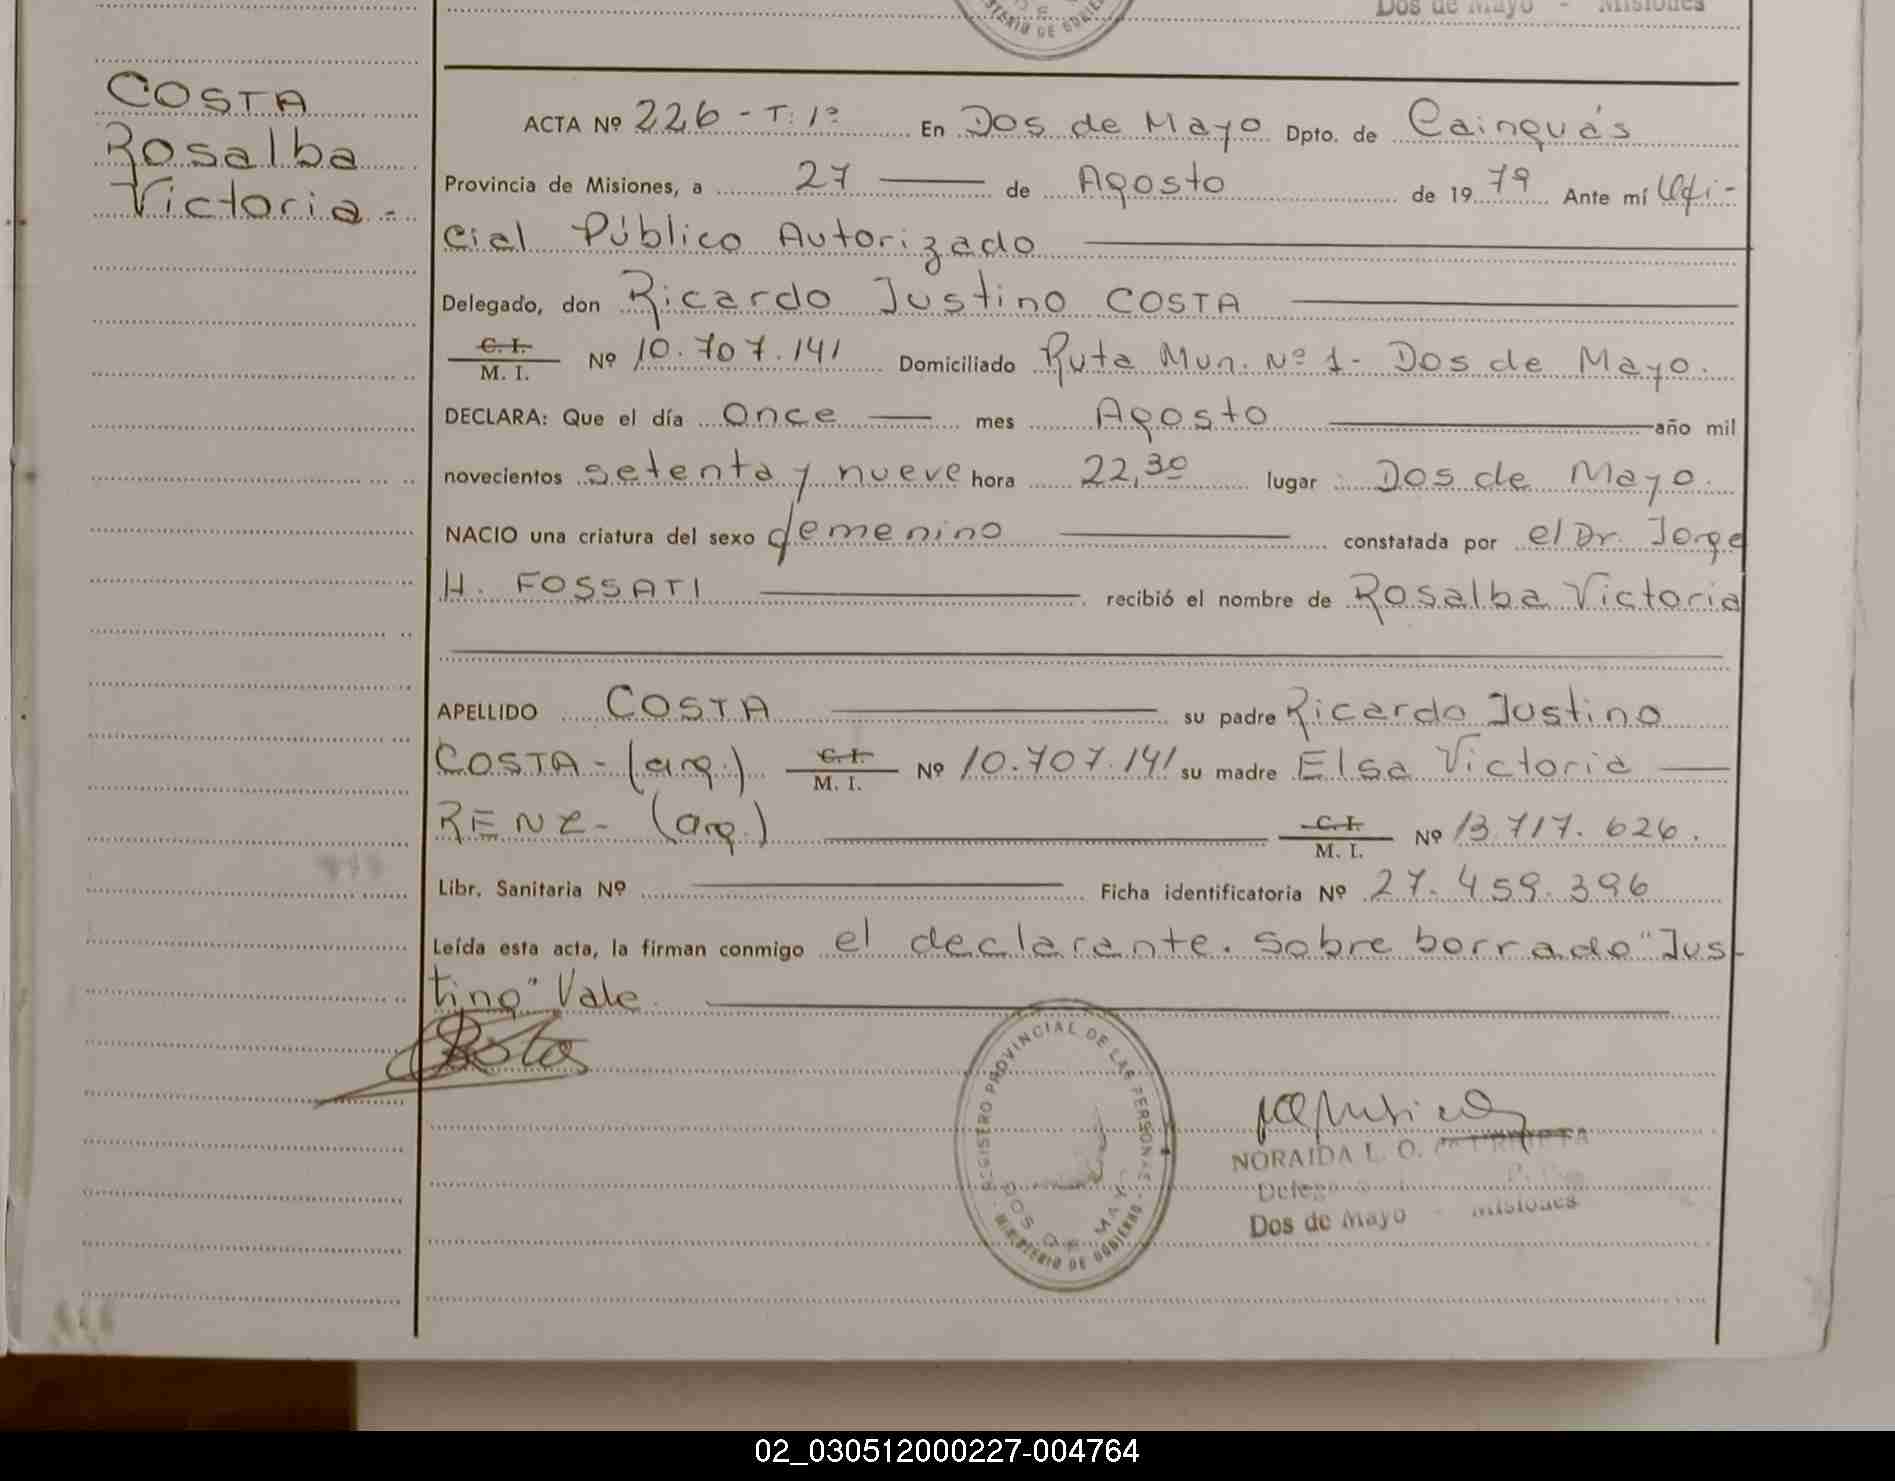 Dos de Mayo - Misiones
COSTA
Rosalba
Victoria -
ACTA Nº 226 - T: 1º En Dos de Mayo Dpto. de Cainguás
Provincia de Misiones, a 27 — de Agosto de 19 79 Ante mí Ofi-
cial Público Autorizado
Delegado, don Ricardo Justino COSTA
C. I.
M. I. Nº 10.707.141 Domiciliado Ruta Mun. Nº 1 - Dos de Mayo.
DECLARA: Que el día once — mes Agosto — año mil
novecientos setenta y nueve hora 22,30 lugar Dos de Mayo.
NACIO una criatura del sexo femenino — constatada por el Dr. Jorge
H. FOSSATI — recibió el nombre de Rosalba Victoria
APELLIDO COSTA — su padre Ricardo Justino
COSTA - (arg.) C. I. M. I. Nº 10.707.141 su madre Elsa Victoria —
RENZ - (arg.) — C. I. M. I. Nº 13.717.626.
Libr. Sanitaria Nº — Ficha identificatoria Nº 27.459.396
Leída esta acta, la firman conmigo el declarante. Sobre borrado "Jus-
tino" Vale.
REGISTRO PROVINCIAL DE LAS PERSONAS
DOS DE MAYO
MINISTERIO DE GOBIERNO
NORAIDA L. O.
Dos de Mayo - Misiones
02_030512000227-004764